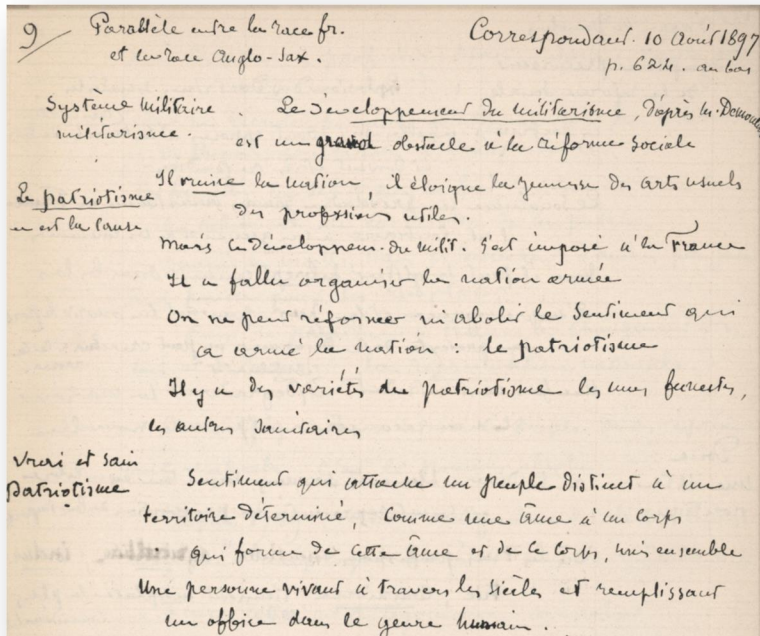 9
Parallèle entre la race fr.
et la race Anglo-Sax.
Correspondant. 10 Août 1897
p. 624. au bas
Système militaire
militarisme.
Le développement du militarisme, d'après Mr. Demoulins
est un grand obstacle à la réforme sociale
Il ruine la nation, il éloigne la jeunesse des arts usuels
des professions utiles.
Le patriotisme
en est la cause
Mais le développem. du milit. s'est imposé à la France
Il a fallu organiser la nation armée
On ne peut réformer ni abolir le sentiment qui
a armé la nation : le patriotisme
Il y a des variétés de patriotisme les unes funestes,
les autres sanitaires
Vrai et sain
patriotisme
Sentiment qui attache un peuple distinct à un
territoire déterminé, comme une âme à un corps
qui forme de cette âme et de ce corps, unis ensemble
une personne vivant à travers les siècles et remplissant
un office dans le genre humain.